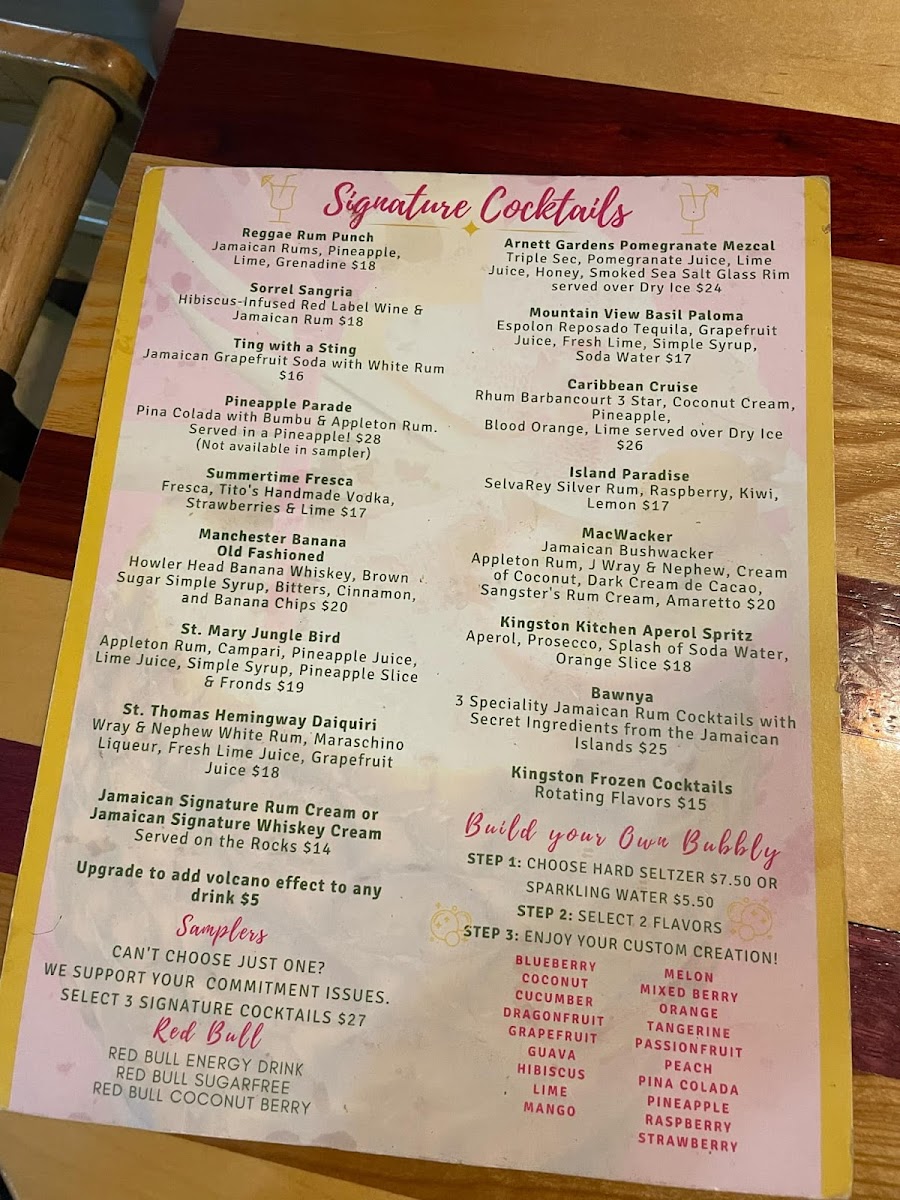 Signature Cocktails
Reggae Rum Punch
Jamaican Rums, Pineapple,
Lime, Grenadine $18
Sorrel Sangria
Hibiscus-Infused Red Label Wine &
Jamaican Rum $18
Ting with a Sting
Jamaican Grapefruit Soda with White Rum
$16
Pineapple Parade
Pina Colada with Bumbu & Appleton Rum.
Served in a Pineapple! $28
(Not available in sampler)
Summertime Fresca
Fresca, Tito's Handmade Vodka,
Strawberries & Lime $17
Manchester Banana
Old Fashioned
Howler Head Banana Whiskey, Brown
Sugar Simple Syrup, Bitters, Cinnamon,
and Banana Chips $20
St. Mary Jungle Bird
Appleton Rum, Campari, Pineapple Juice,
Lime Juice, Simple Syrup, Pineapple Slice
& Fronds $19
St. Thomas Hemingway Daiquiri
Wray & Nephew White Rum, Maraschino
Liqueur, Fresh Lime Juice, Grapefruit
Juice $18
Jamaican Signature Rum Cream or
Jamaican Signature Whiskey Cream
Served on the Rocks $14
Upgrade to add volcano effect to any
drink $5
Samplers
CAN'T CHOOSE JUST ONE?
WE SUPPORT YOUR COMMITMENT ISSUES.
SELECT 3 SIGNATURE COCKTAILS $27
Red Bull
RED BULL ENERGY DRINK
RED BULL SUGARFREE
RED BULL COCONUT BERRY
Arnett Gardens Pomegranate Mezcal
Triple Sec, Pomegranate Juice, Lime
Juice, Honey, Smoked Sea Salt Glass Rim
served over Dry Ice $24
Mountain View Basil Paloma
Espolon Reposado Tequila, Grapefruit
Juice, Fresh Lime, Simple Syrup,
Soda Water $17
Caribbean Cruise
Rhum Barbancourt 3 Star, Coconut Cream,
Pineapple,
Blood Orange, Lime served over Dry Ice
$26
Island Paradise
SelvaRey Silver Rum, Raspberry, Kiwi,
Lemon $17
MacWacker
Jamaican Bushwacker
Appleton Rum, J Wray & Nephew, Cream
of Coconut, Dark Cream de Cacao,
Sangster's Rum Cream, Amaretto $20
Kingston Kitchen Aperol Spritz
Aperol, Prosecco, Splash of Soda Water,
Orange Slice $18
Bawnya
3 Speciality Jamaican Rum Cocktails with
Secret Ingredients from the Jamaican
Islands $25
Kingston Frozen Cocktails
Rotating Flavors $15
Build your Own Bubbly
STEP 1: CHOOSE HARD SELTZER $7.50 OR
SPARKLING WATER $5.50
STEP 2: SELECT 2 FLAVORS
STEP 3: ENJOY YOUR CUSTOM CREATION!
BLUEBERRY
COCONUT
CUCUMBER
DRAGONFRUIT
GRAPEFRUIT
GUAVA
HIBISCUS
LIME
MANGO
MELON
MIXED BERRY
ORANGE
TANGERINE
PASSIONFRUIT
PEACH
PINA COLADA
PINEAPPLE
RASPBERRY
STRAWBERRY